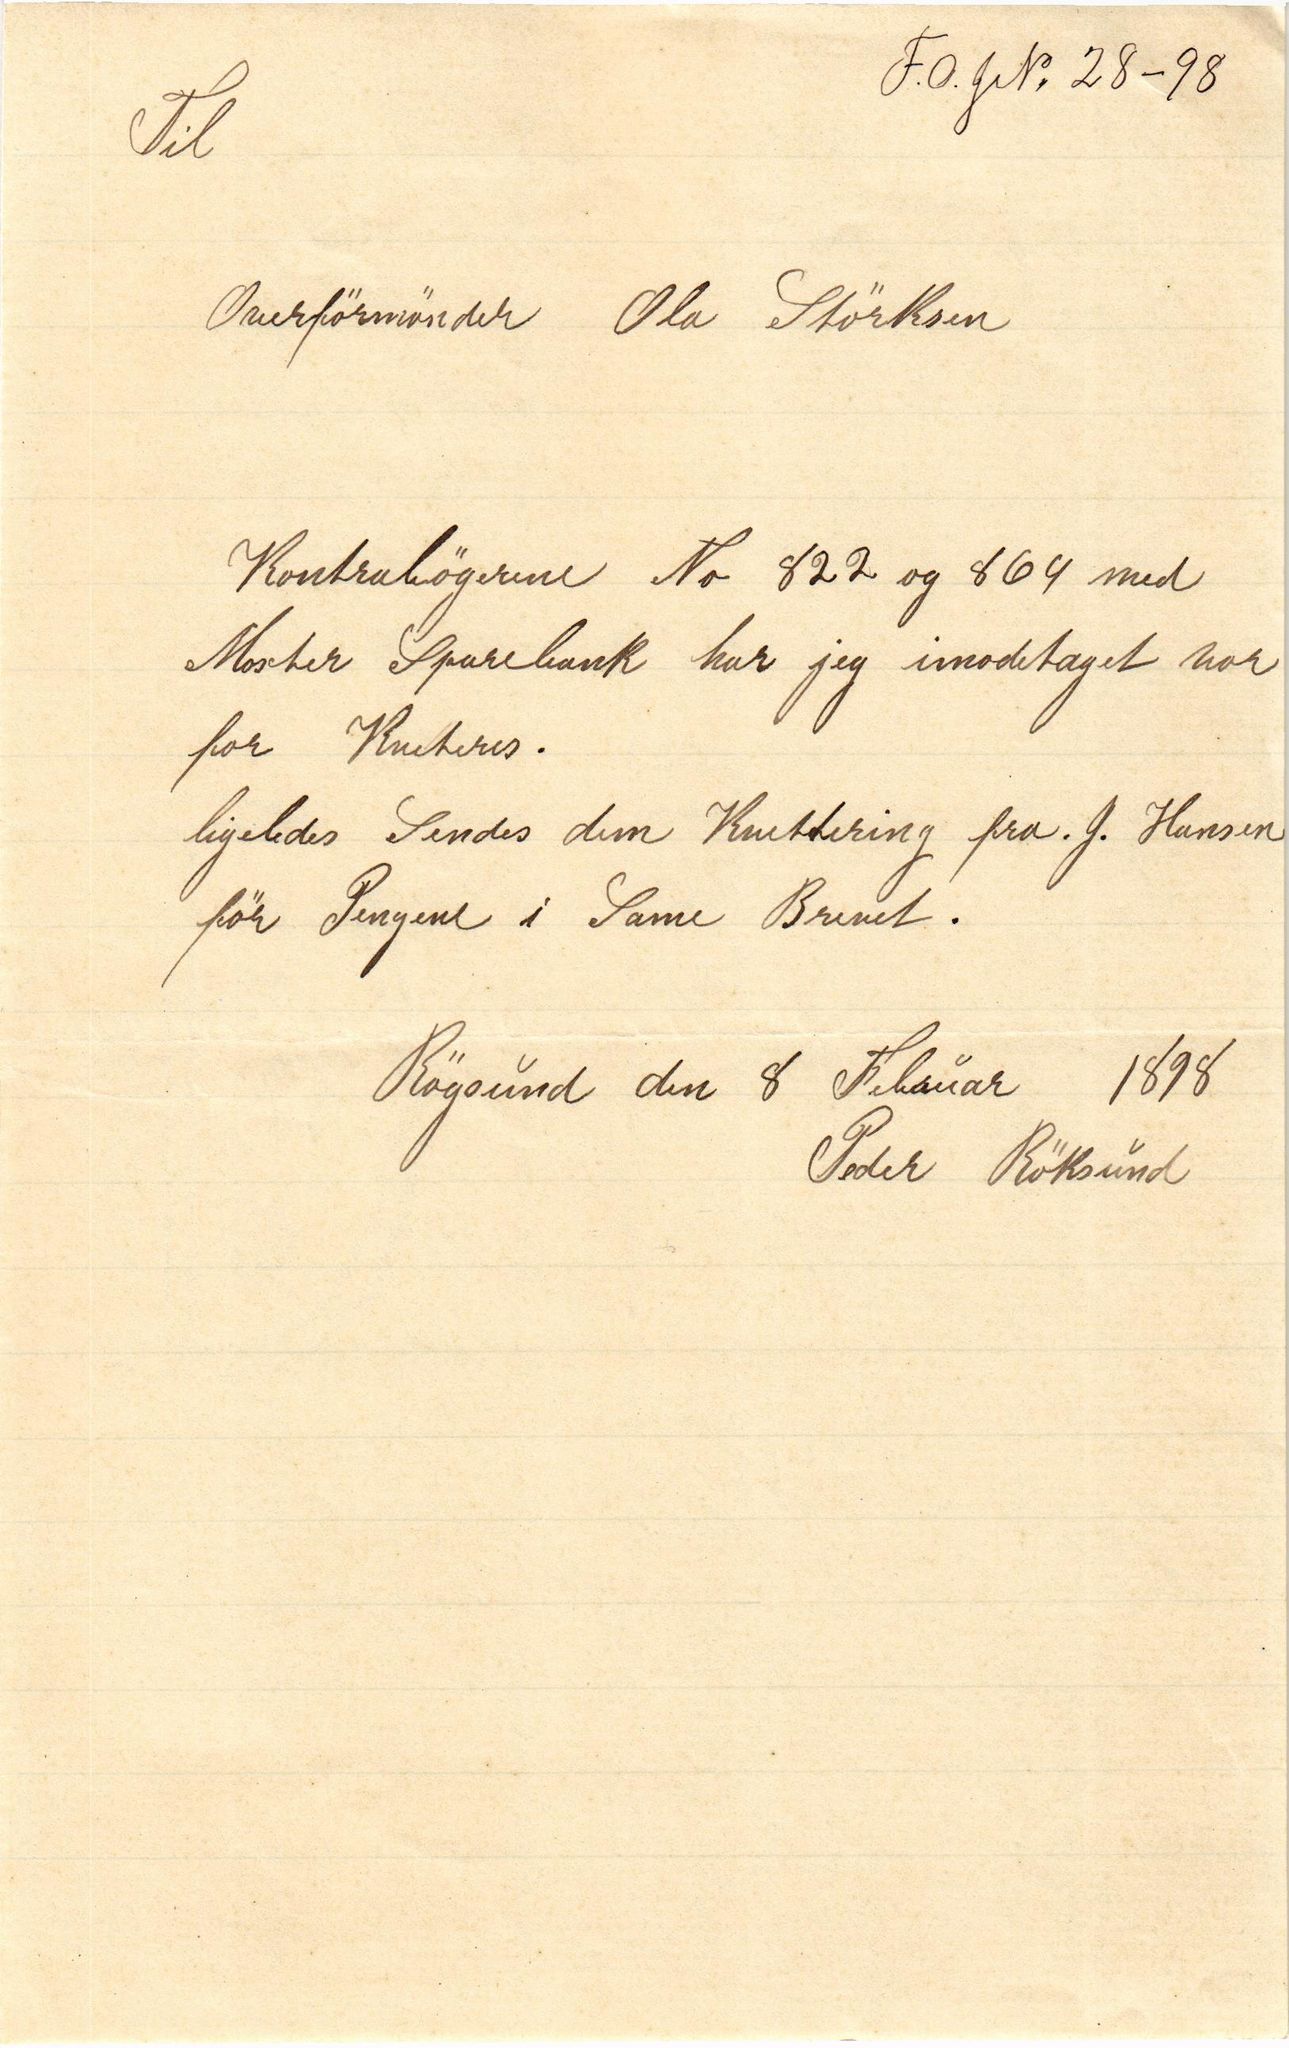 F.O. J.No. 28-98
Til
Overförmönder Ola Störksen
Kontrabögerene No 822 og 864 med
Moster Sparebank har jeg imodetaget vor
for Kveteres.
ligeledes Sendes dem Kvettering fra. J. Hansen
för Pengene i Same Brevet.
Rögsŭnd den 8 Febrŭar 1898
Peder Röksŭnd